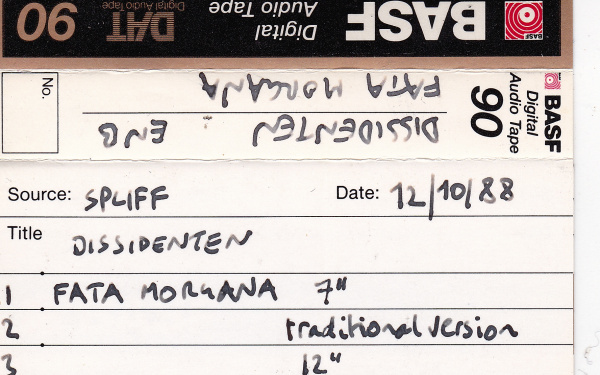 BASF
Digital
Audio Tape
DAT
Digital Audio Tape
90
BASF
Digital
Audio Tape
90
No.
DISSIDENTEN ENB
FATA MORGANA
Source: SPLIFF Date: 12/10/88
Title DISSIDENTEN
1 FATA MORGANA 7"
2 traditional version
3 12"